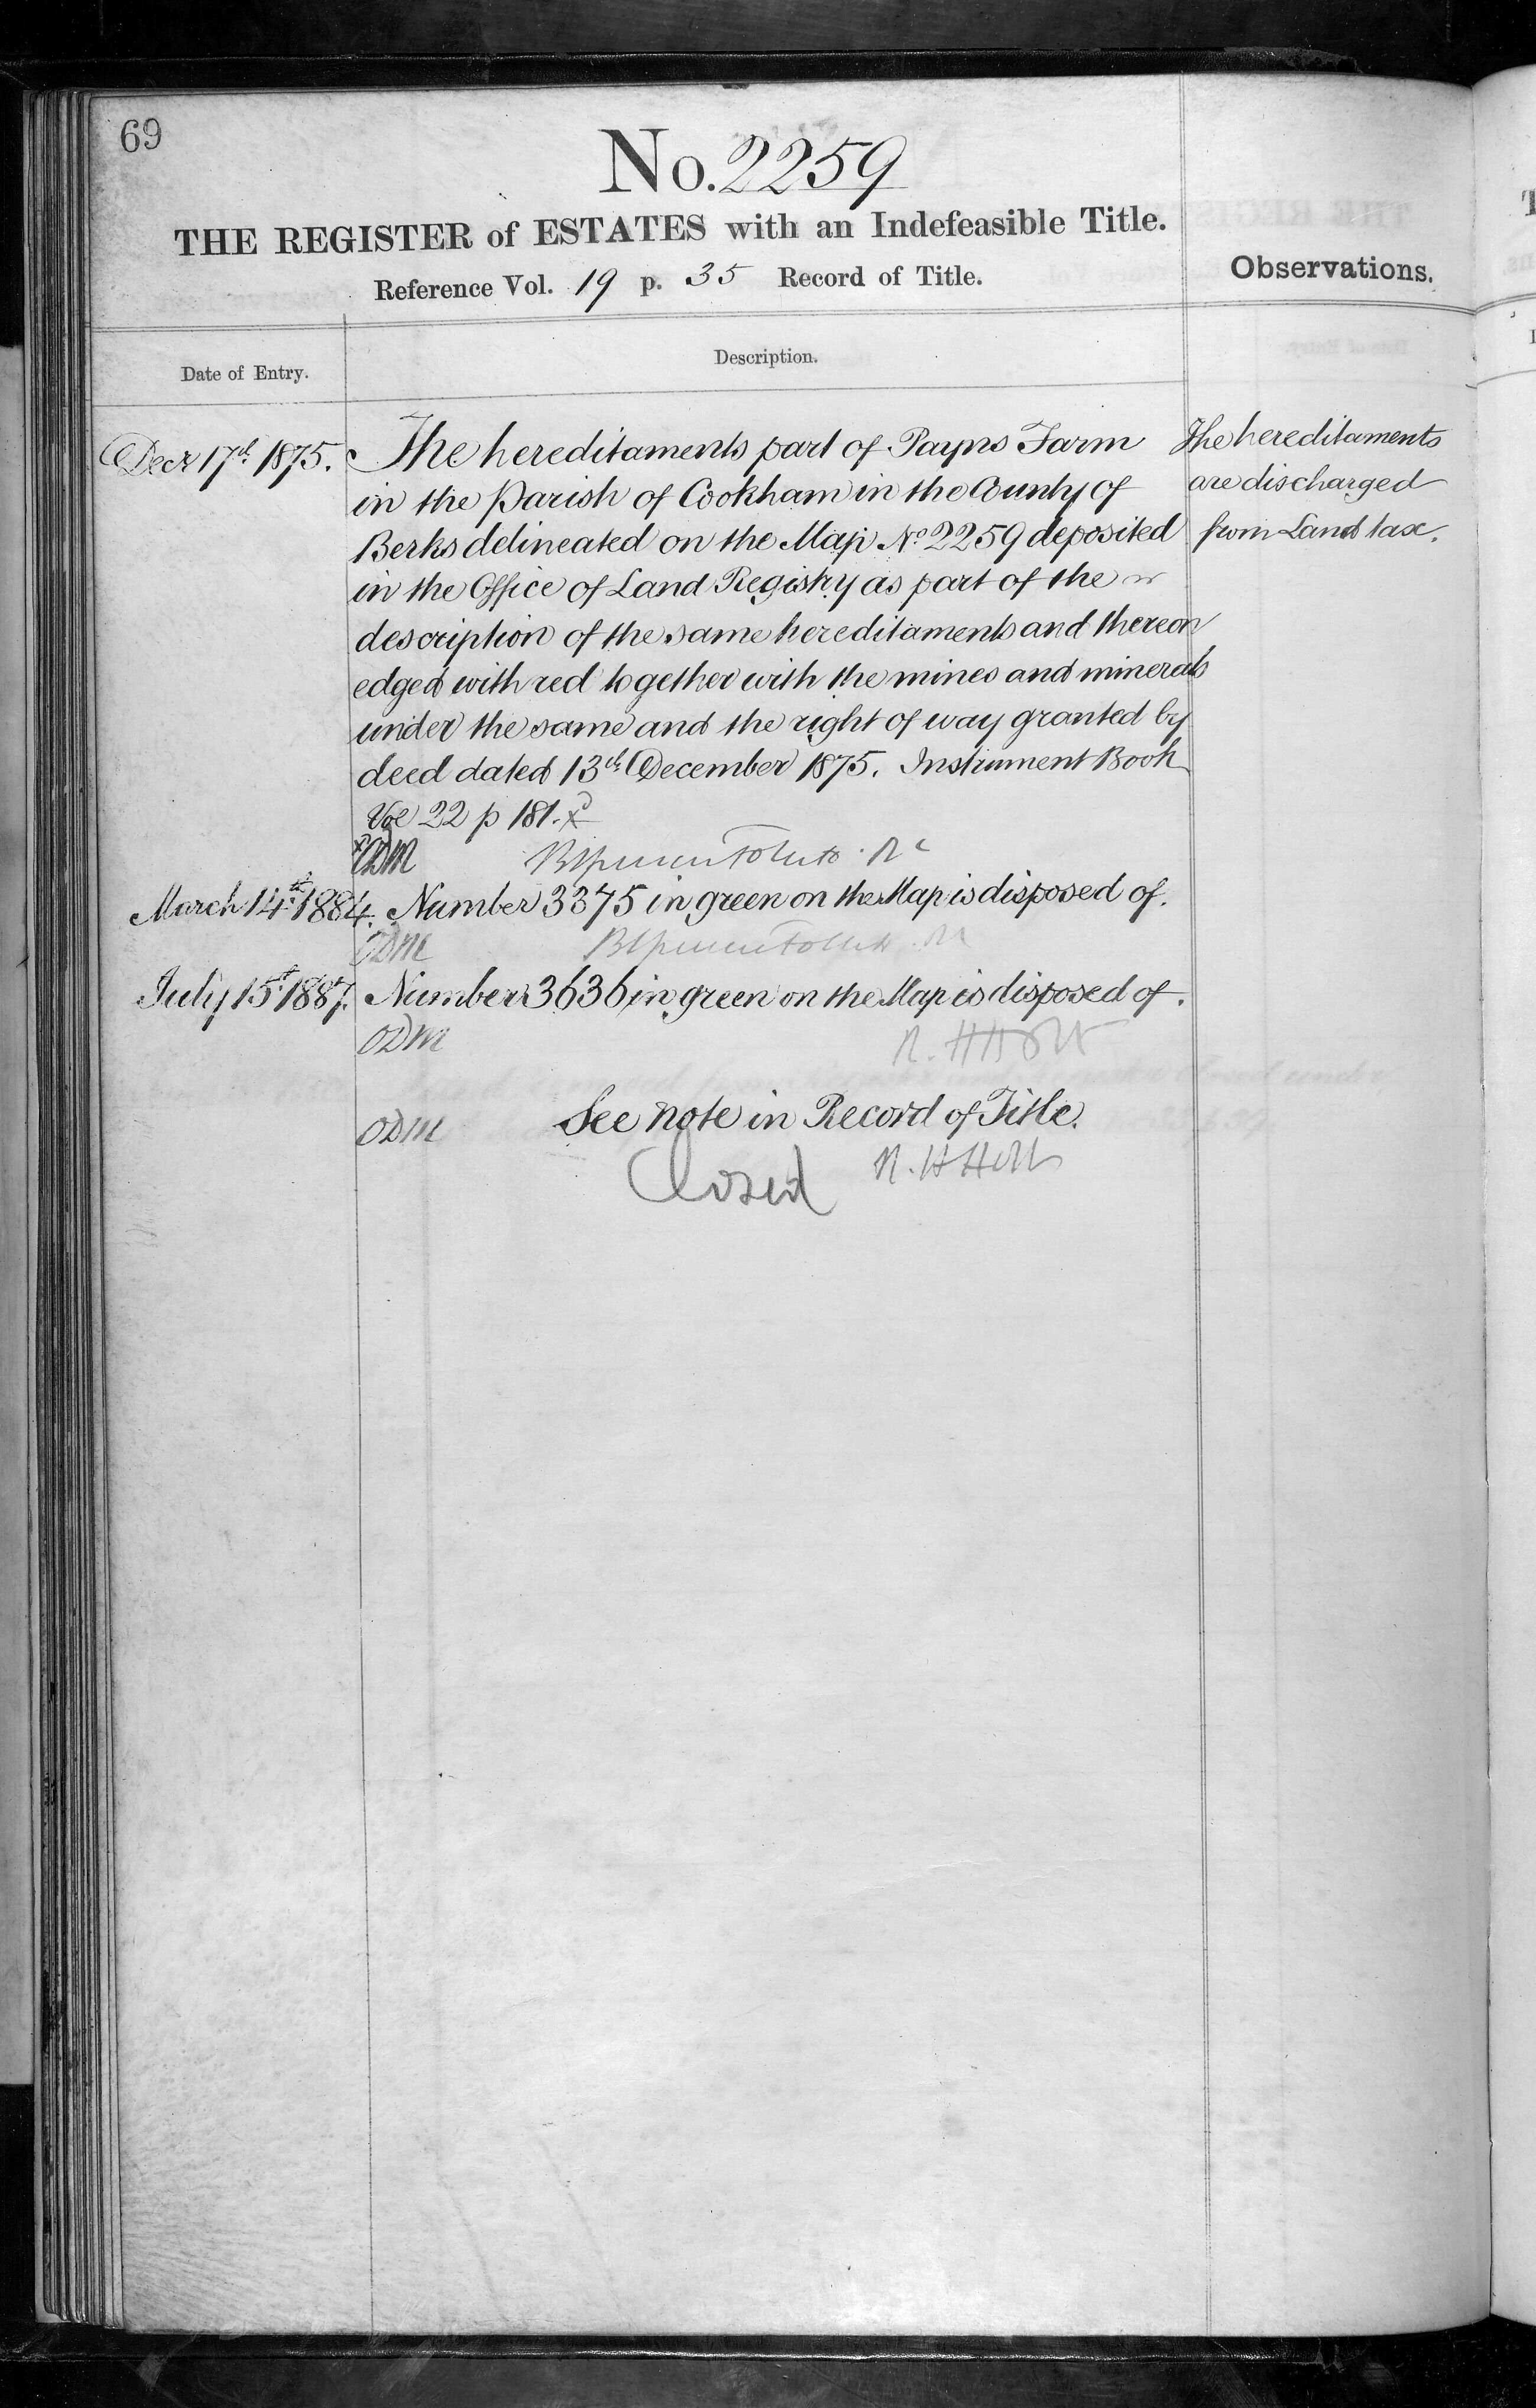 69
No. 2259
THE REGISTER of ESTATES with an Indefeasible Title.
Reference Vol. 19 p. 35 Record of Title.
Observations.
Date of Entry.
Description.
Decr 17th 1875.
The hereditaments part of Payns Farm
in the Parish of Cookham in the County of
Berks delineated on the Map No 2259 deposited
in the Office of Land Registry as part of the
description of the same hereditaments and thereon
edged with red together with the mines and minerals
under the same and the right of way granted by
deed dated 13th December 1875. Instrument Book
Vol 22 p 181. x
The hereditaments
are discharged
from Land tax.
ODM
March 14th 1884. Number 3375 in green on the Map is disposed of.
ODM
July 15th 1887. Number 3636 in green on the Map is disposed of.
ODM R. H Holt
ODM See note in Record of Title.
Closed R. H Holt